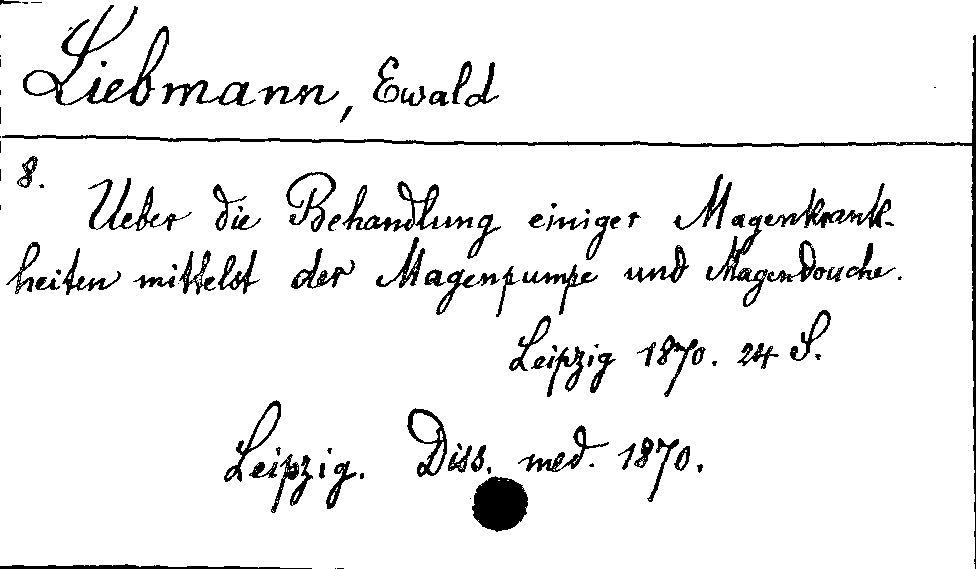 Liebmann, Ewald
8.
Ueber die Behandlung einiger Magenkrank-
heiten mittelst der Magenpumpe und Magendouche.
Leipzig 1870. 24 S.
Leipzig. Diss. med. 1870.